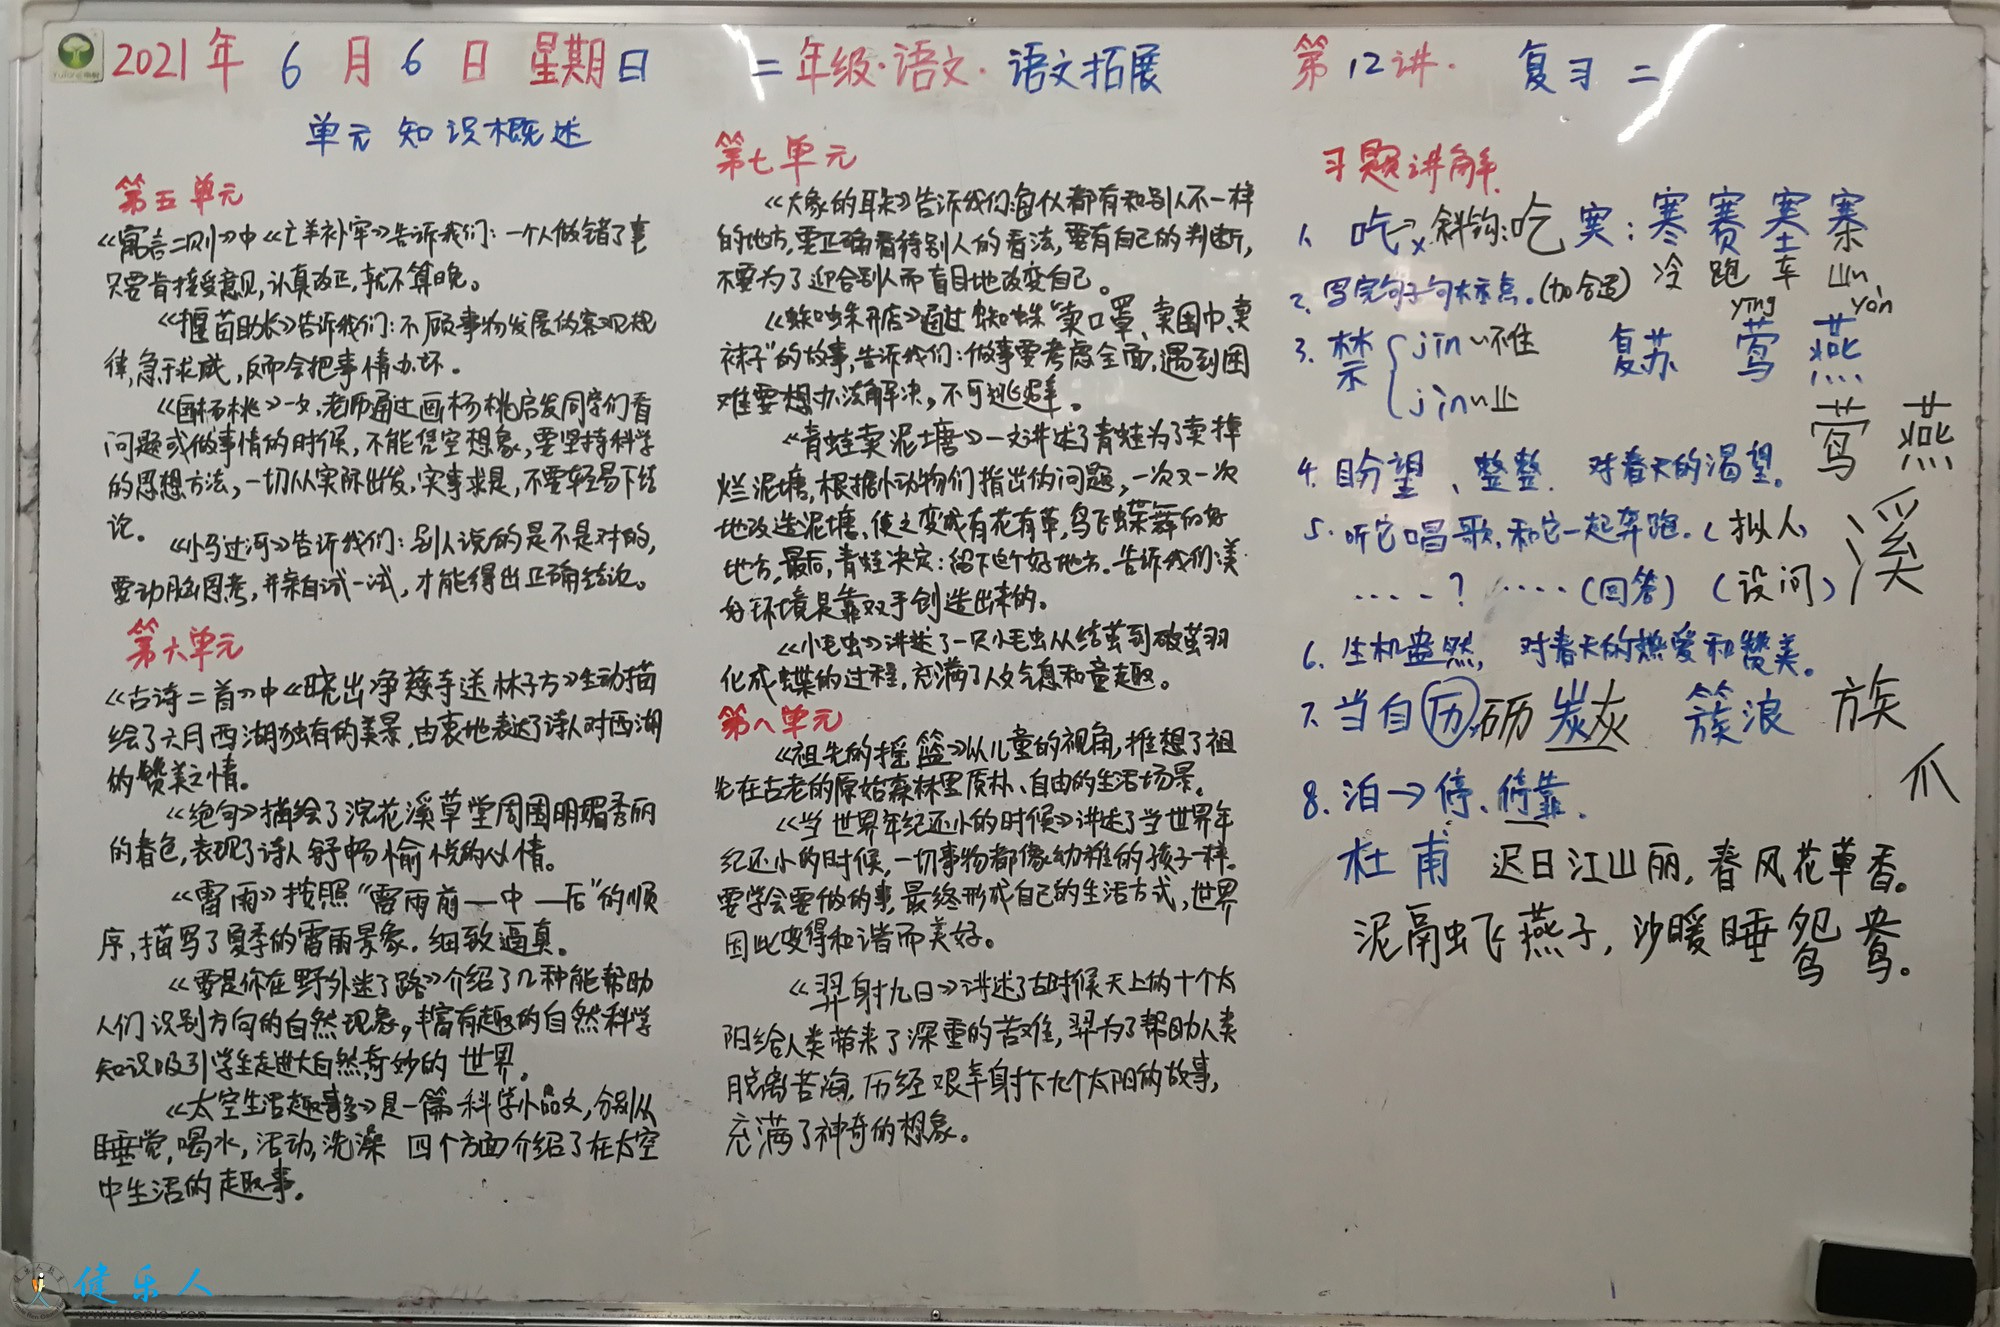 2021年 6月6日 星期日 二年级·语文·语文拓展 第12讲· 复习二
单元知识概述
第五单元
《寓言二则》中《亡羊补牢》告诉我们：一个人做错了事
只要肯接受意见，认真改正，就不算晚。
《揠苗助长》告诉我们：不顾事物发展的客观规
律，急于求成，反而会把事情办坏。
《画杨桃》一文，老师通过画杨桃启发同学们看
问题或做事情的时候，不能凭空想象，要坚持科学
的思想方法，一切从实际出发，实事求是，不要轻易下结
论。
《小马过河》告诉我们：别人说的是不是对的，
要动脑思考，并亲自试一试，才能得出正确结论。
第六单元
《古诗二首》中《晓出净慈寺送林子方》生动描
绘了六月西湖独有的美景，由衷地表达了诗人对西湖
的赞美之情。
《绝句》描绘了浣花溪草堂周围明媚秀丽
的春色，表现了诗人舒畅愉悦的心情。
《雷雨》按照“雷雨前—中—后”的顺
序，描写了夏季的雷雨景象，细致逼真。
《要是你在野外迷了路》介绍了几种能帮助
人们识别方向的自然现象，丰富有趣的自然科学
知识吸引学生走进大自然奇妙的世界。
《太空生活趣事多》是一篇科学小品文，分别从
睡觉，喝水，活动，洗澡 四个方面介绍了在太空
中生活的趣事。
第七单元
《大象的耳朵》告诉我们：每个人都有和别人不一样
的地方，要正确看待别人的看法，要有自己的判断，
不要为了迎合别人而盲目地改变自己。
《蜘蛛开店》通过蜘蛛“卖口罩、卖围巾、卖
袜子”的故事，告诉我们：做事要考虑全面，遇到困
难要想办法解决，不可逃避。
《青蛙卖泥塘》一文讲述了青蛙为了卖掉
烂泥塘，根据小动物们指出的问题，一次又一次
地改造泥塘，使之变成有花有草，鸟飞蝶舞的好
地方，最后，青蛙决定：留下这个好地方。告诉我们：美
好环境是靠双手创造出来的。
《小毛虫》讲述了一只小毛虫从结茧到破茧羽
化成蝶的过程，充满了人文气息和童趣。
第八单元
《祖先的摇篮》从儿童的视角，推想了祖
先在古老的原始森林里质朴、自由的生活场景。
《当世界年纪还小的时候》讲述了当世界年
纪还小的时候，一切事物都像幼稚的孩子一样。
要学会要做的事，最终形成自己的生活方式，世界
因此变得和谐而美好。
《羿射九日》讲述了古时候天上的十个太
阳给人类带来了深重的苦难，羿为了帮助人类
脱离苦海，历经艰辛射下九个太阳的故事，
充满了神奇的想象。
习题讲解
1. 吃→x 斜钩：吃 寞：寒 赛 塞 寨
冷 跑 车 山
2. 写完句子句末标点。（加合适）
ying yàn
3. 禁 jīn～不住 复苏 莺 燕
jìn～止
莺 燕
4. 盼望、整整. 对春天的渴望。
5. 听它唱歌，和它一起奔跑.（拟人）
溪
……？……（回答）（设问）
6. 生机盎然，对春天的热爱和赞美。
7. 当自历 砺 炭灰 簇浪 族
爪
8. 泊→停、停靠.
杜甫 迟日江山丽，春风花草香。
泥融飞燕子，沙暖睡鸳鸯。
健乐人